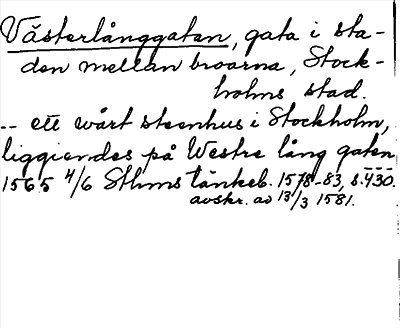 Västerlånggatan, gata i sta-
den mellan broarna, Stock-
holms stad.
-- ett wårt steenhus i Stockholm,
liggiendes på Westre lång gaten
1565 4/6 Sthms tänkeb. 1578-83, s. 430.
avskr. av 13/3 1581.